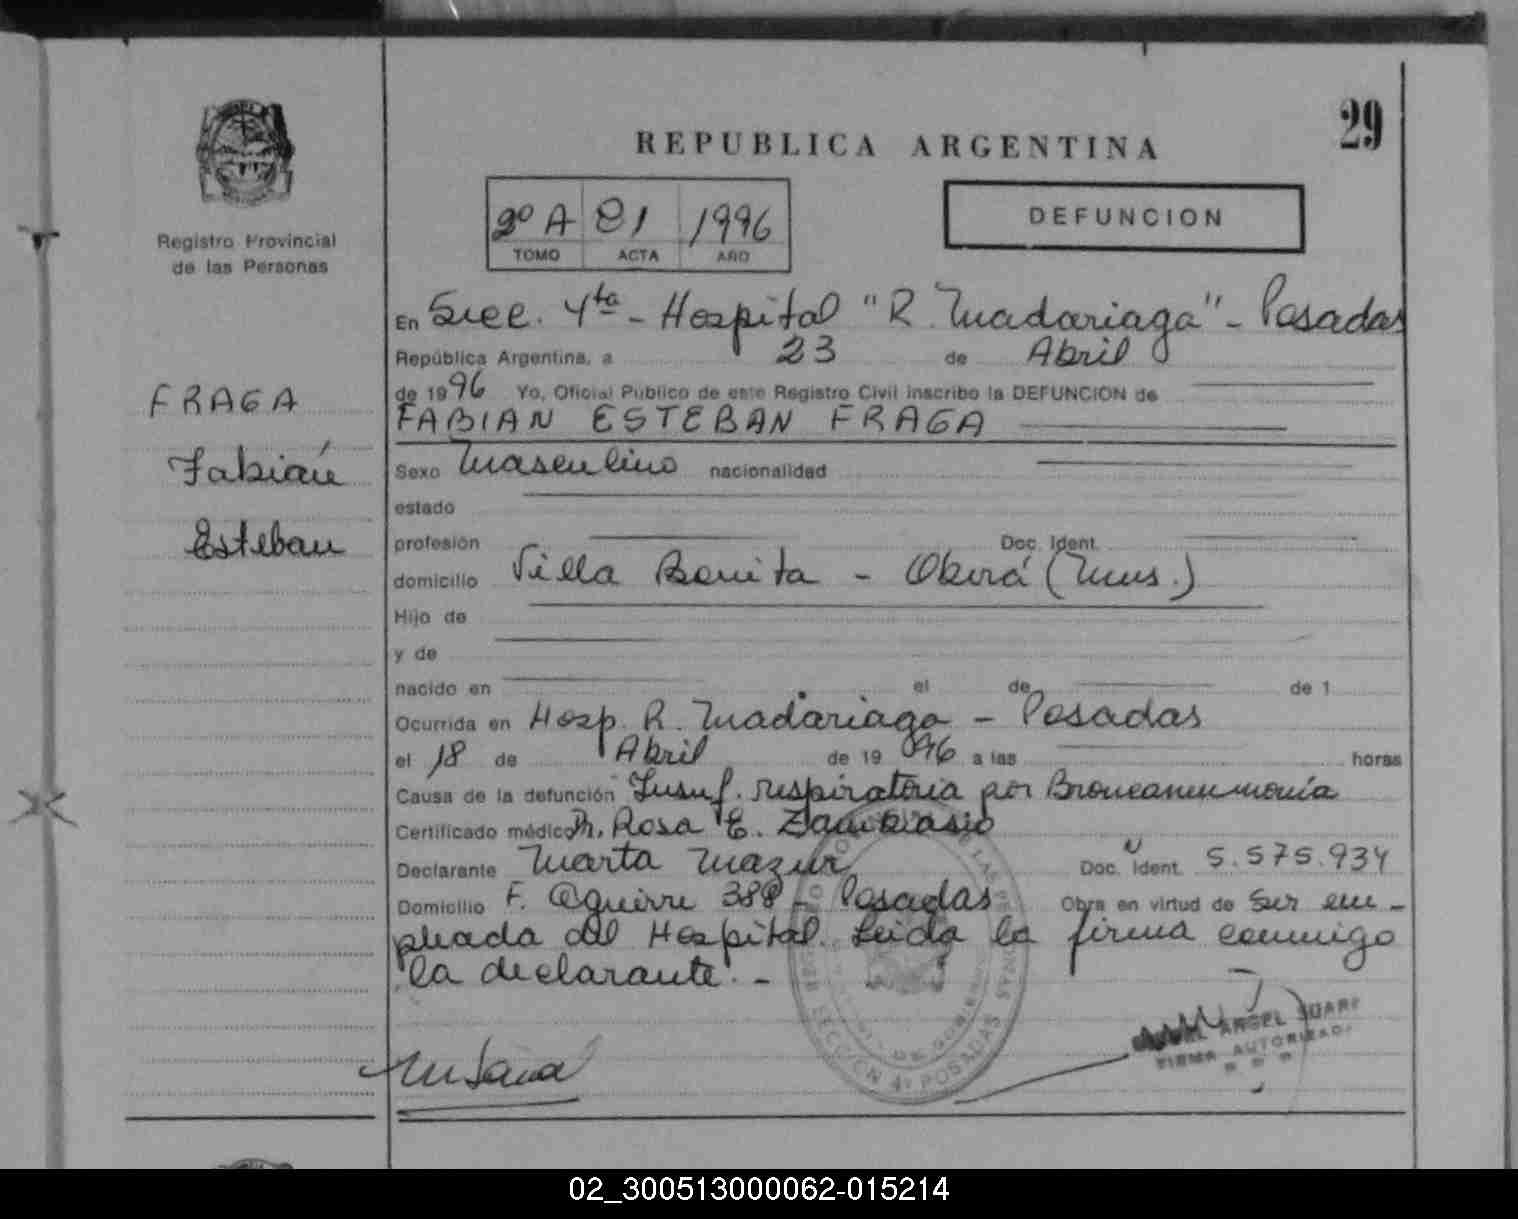 29
REPUBLICA ARGENTINA
2º A 81 1996
TOMO ACTA AÑO
DEFUNCION
Registro Provincial
de las Personas
FRAGA
Fabián
Esteban
En Secc. 4ta - Hospital "R. Madariaga" - Posadas
República Argentina, a 23 de Abril
de 1996 Yo, Oficial Público de este Registro Civil inscribo la DEFUNCION de
FABIAN ESTEBAN FRAGA
Sexo Masculino nacionalidad
estado
profesión Doc. Ident.
domicilio Villa Bonita - Oberá (Mnes.)
Hijo de
y de
nacido en el de de 1
Ocurrida en Hosp. R. Madariaga - Posadas
el 18 de Abril de 19 96 a las horas
Causa de la defunción Insuf. respiratoria por Bronconeumonía
Certificado médico Dr. Rosa E.
Declarante Marta Mazur Doc. Ident. 5.575.934
Domicilio F. Aguirre 388 - Posadas Obra en virtud de ser em-
pleada del Hospital. Leída la firma conmigo
la declarante. -
ANGEL
FIRMA AUTORIZADA
SECCION 4ª POSADAS
02_300513000062-015214